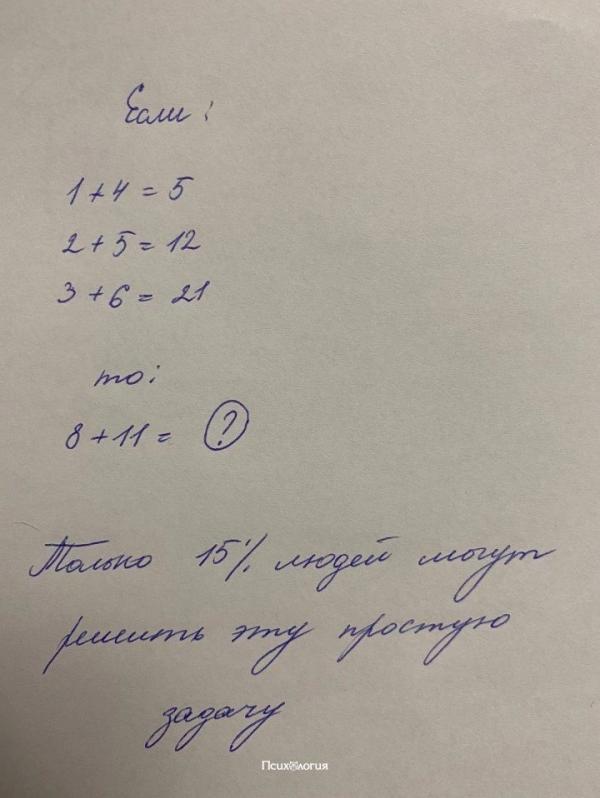 Если:
1 + 4 = 5
2 + 5 = 12
3 + 6 = 21
то:
8 + 11 = ?
Только 15% людей могут
решить эту простую
задачу
Психология